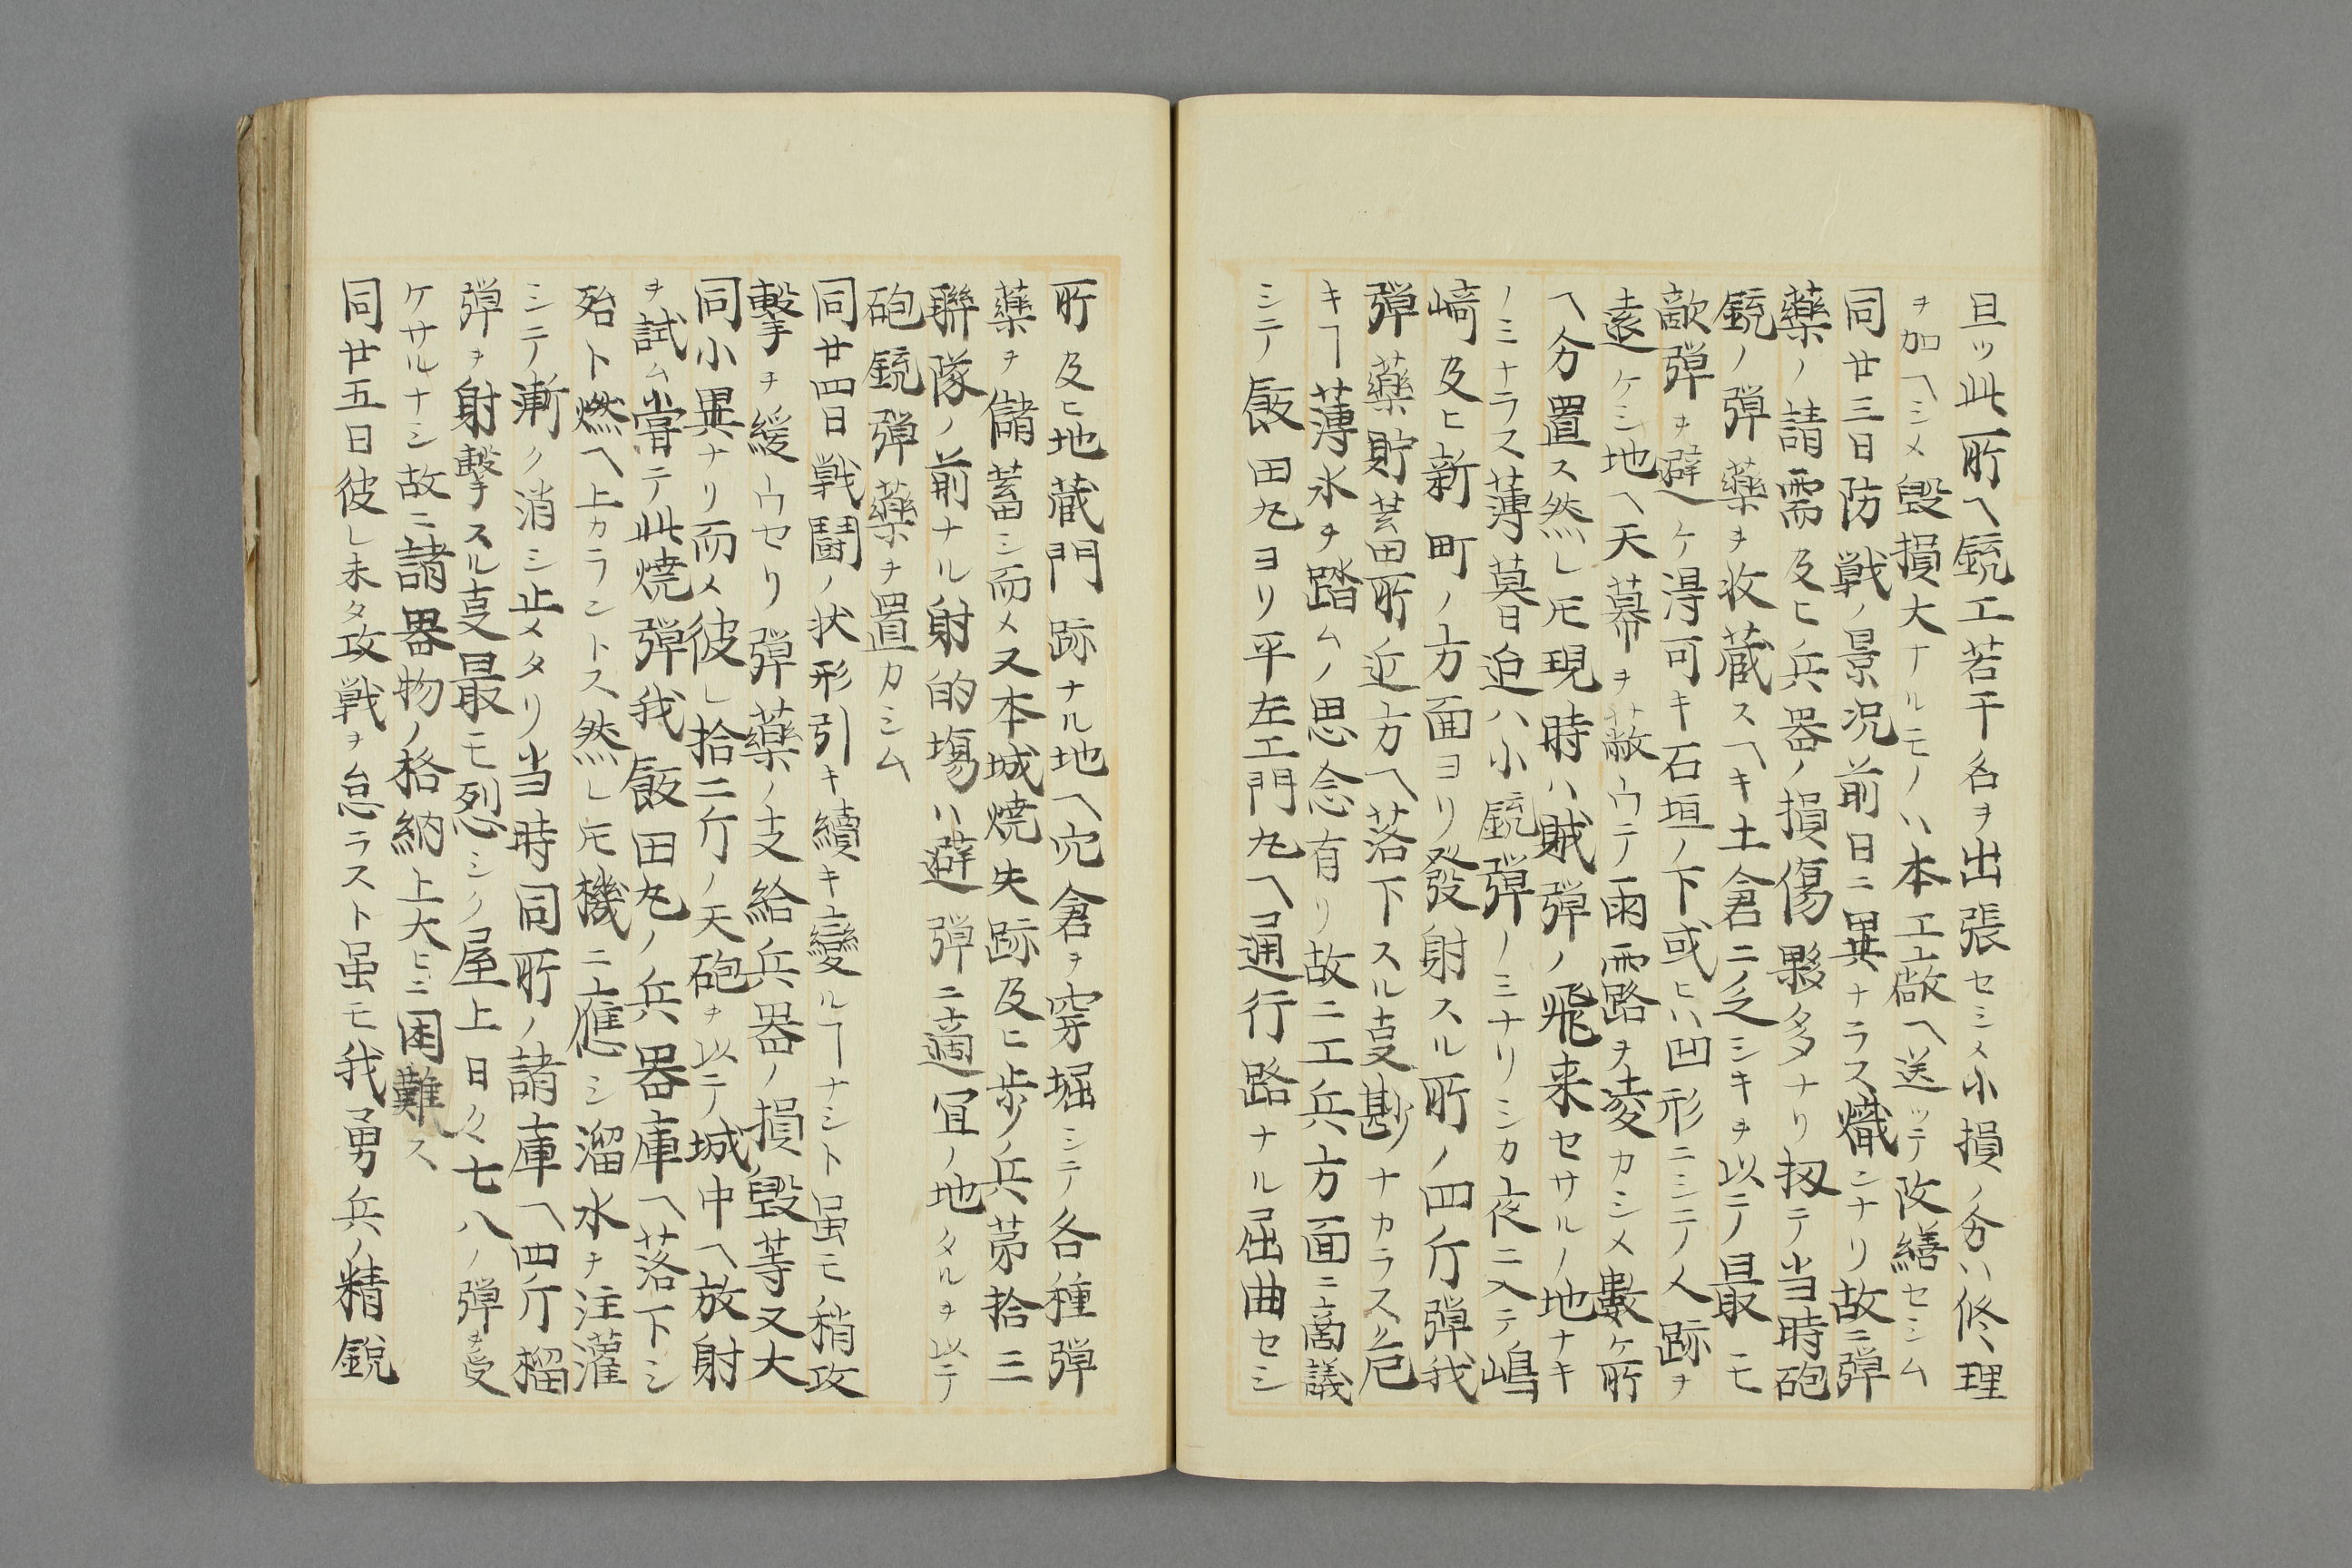 且ツ此所ヘ鋶工若干名ヲ出張セシメ小損ノ分ハ修理
ヲ加ヘシメ毀損大ナルモノハ本工廠ヘ送ッテ改繕セシム
同廿三日防戦ノ景況前日ニ異ナラス熾ンナリ故ニ弾
藥ノ請需及ヒ兵器ノ損傷夥多ナリ扨テ当時砲
銃ノ弾藥ヲ収蔵スヘキ土倉ニ乏シキヲ以テ最モ
敵弾ヲ避ケ得可キ石垣ノ下或ヒハ凹形ニシテ人跡ヲ
遠ケシ地ヘ天幕ヲ蔽ウテ雨露ヲ凌カシメ數ケ所
ヘ分置ス然レ𪜈現時ハ賊弾ノ飛来セサルノ地ナキ
ノミナラス薄暮迫ハ小銃弾ノミナリシカ夜ニ入テ嶋
﨑及ヒ新町ノ方面ヨリ發射スル所ノ四斤弾我
弾藥貯蓄所近方ヘ落下スル叓尠ナカラス危
キヿ薄氷ヲ踏ムノ思念有リ故ニ工兵方面ニ商議
シテ飯田丸ヨリ平左エ門丸ヘ通行路ナル屈曲セシ
所及ヒ地蔵門跡ナル地ヘ穴倉ヲ穿堀シテ各種弾
藥ヲ儲蓄シ而メ又本城焼失跡及ヒ歩ノ兵苐拾三
聯隊ノ前ナル射的塲ハ避弾ニ適宜ノ地タルヲ以テ
砲銃弾藥ヲ置カシム
同廿四日戦鬪ノ状形引キ續キ變ルヿナシト虽モ稍攻
擊ヲ緩ウセリ弾藥ノ支給兵器ノ損毀等又大
同小異ナリ而メ彼レ拾二斤ノ天砲ヲ以テ城中ヘ放射
ヲ試ム甞テ此焼弾我飯田丸ノ兵器庫ヘ落下シ
殆ト燃ヘ上カラントス然レ𪜈機ニ應シ溜水ヲ注灌
シテ漸ク消シ止メタリ当時同所ノ諸庫ヘ四斤榴
弾ヲ射擊スル叓最モ烈シク屋上日々七八ノ弾ヲ受
ケサルナシ故ニ諸器物ノ格納上大ヒニ困難ス
同廿五日彼レ未タ攻戦ヲ怠ラスト虽モ我勇兵ノ精銳